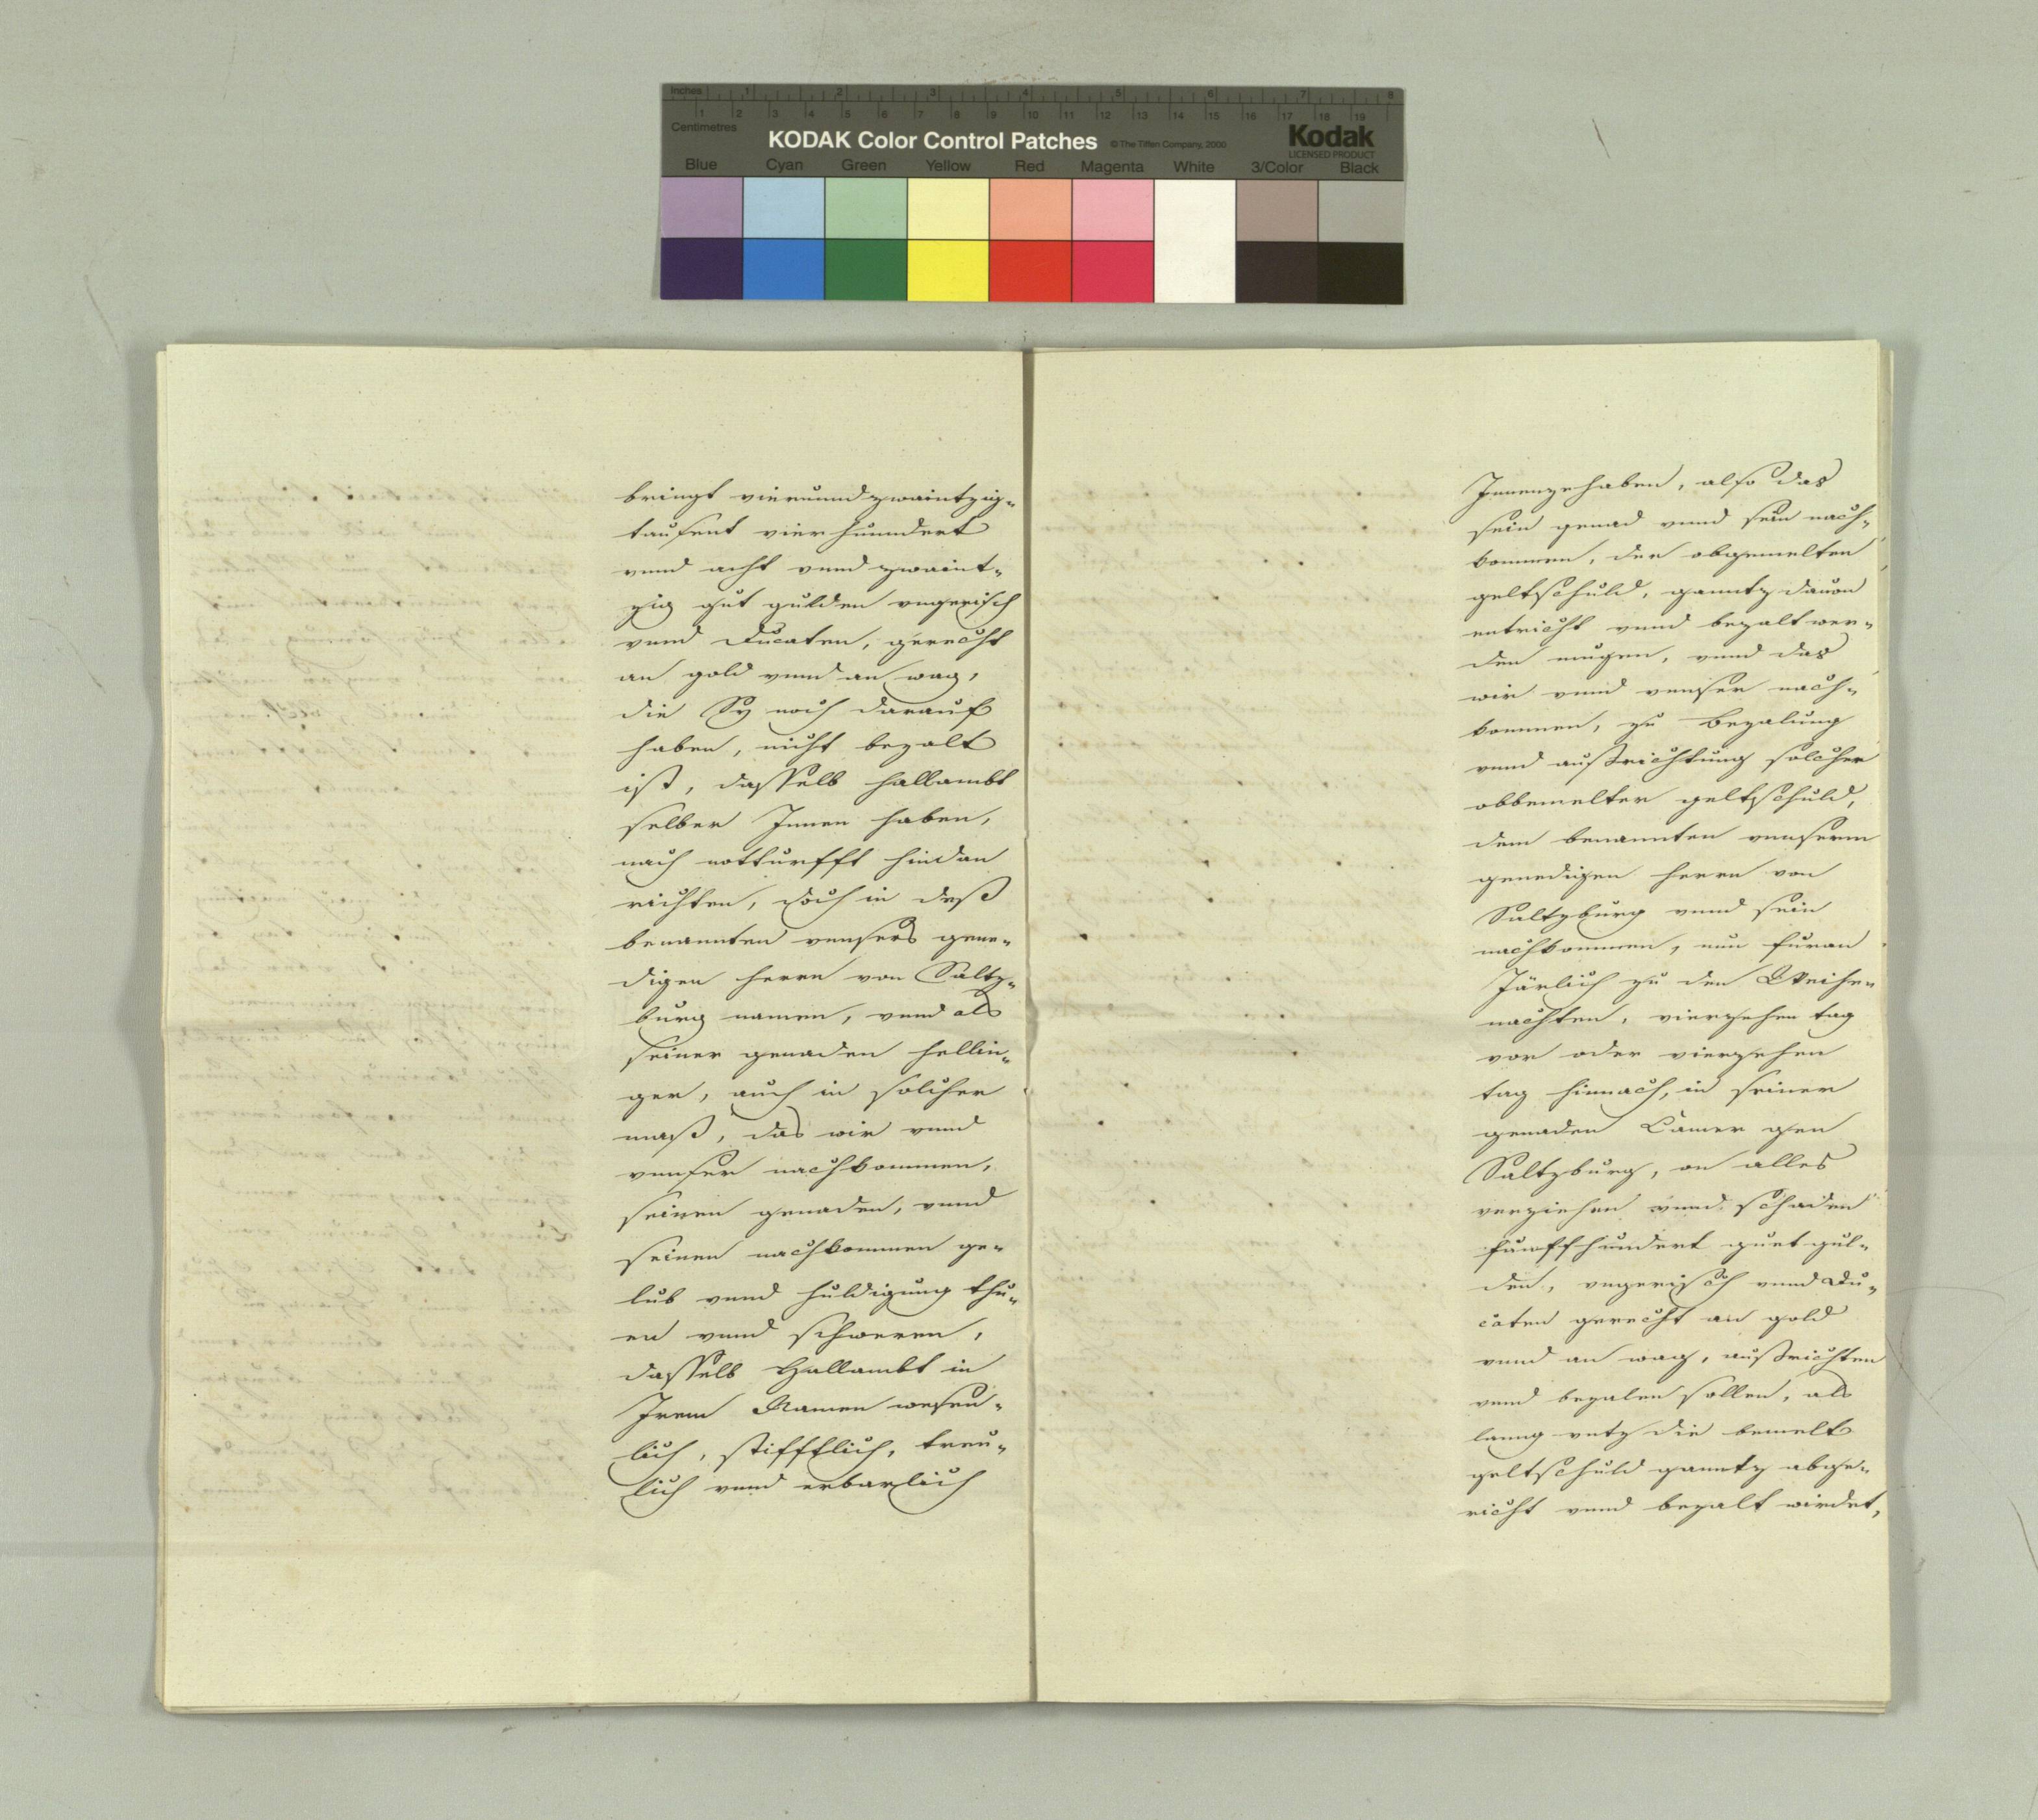 Inches 1 2 3 4 5 6 7 8
1 2 3 4 5 6 7 8 9 10 11 12 13 14 15 16 17 18 19
Centimetres
KODAK Color Control Patches © The Tiffen Company, 2000 Kodak
LICENSED PRODUCT
Blue Cyan Green Yellow Red Magenta White 3/Color Black
bringt vierunndzwaintzig-
tausent vierhunndert
vnnd acht vnnd zwaint-
zig gut gulden vngerisch
vnnd Ducaten, gerecht
an gold vnnd an wag,
die Sy noch darauf
haben, nicht bezalt
ist, dasselb hallambt
selber Innen haben,
nach notturfft hindan
richten, doch in deß
benannten vnnsers gene-
digen herrn von Saltz-
burg namen, vnnd als
seiner genaden hellin-
ger, auch in solicher
maß, das wir vnnd
vnnser nachkommen,
seinen genaden, vnnd
seinen nachkommen ge-
lub vnnd huldigung thu-
en vnnd schweren,
dasselb Hallambt in
Irem Namen wesen-
lich, stifftlich, treu-
lich vnnd erbarlich
Innenzehaben, also das
sein genad vnnd sein nach-
kommen, der obgemelten
geltschuld, ganntz dauon
entricht vnnd bezalt wer-
den mugen, vnnd das
wir vnnd vennser nach-
kommen, zu bezalung
vnnd außrichtung solcher
obbemelter geltschuld,
dem benannten vnnserm
genedigen herrn von
Saltzburg vnnd sein
nachkommen, nun furan
Järlich zu den Weihe-
nachten, vierzehen tag
vor oder vierzehen
tag hinnach, in seiner
genaden Camer gen
Saltzburg, on alles
verziehen vnnd schaden
funffhundert guet gul-
den, vngerisch vnnd Du-
caten gerecht an gold
vnnd an wag, außrichten
vnnd bezalen sollen, als
lanng vntz die bemelt
geltschuld ganntz abge-
richt vnnd bezalt wirdet,